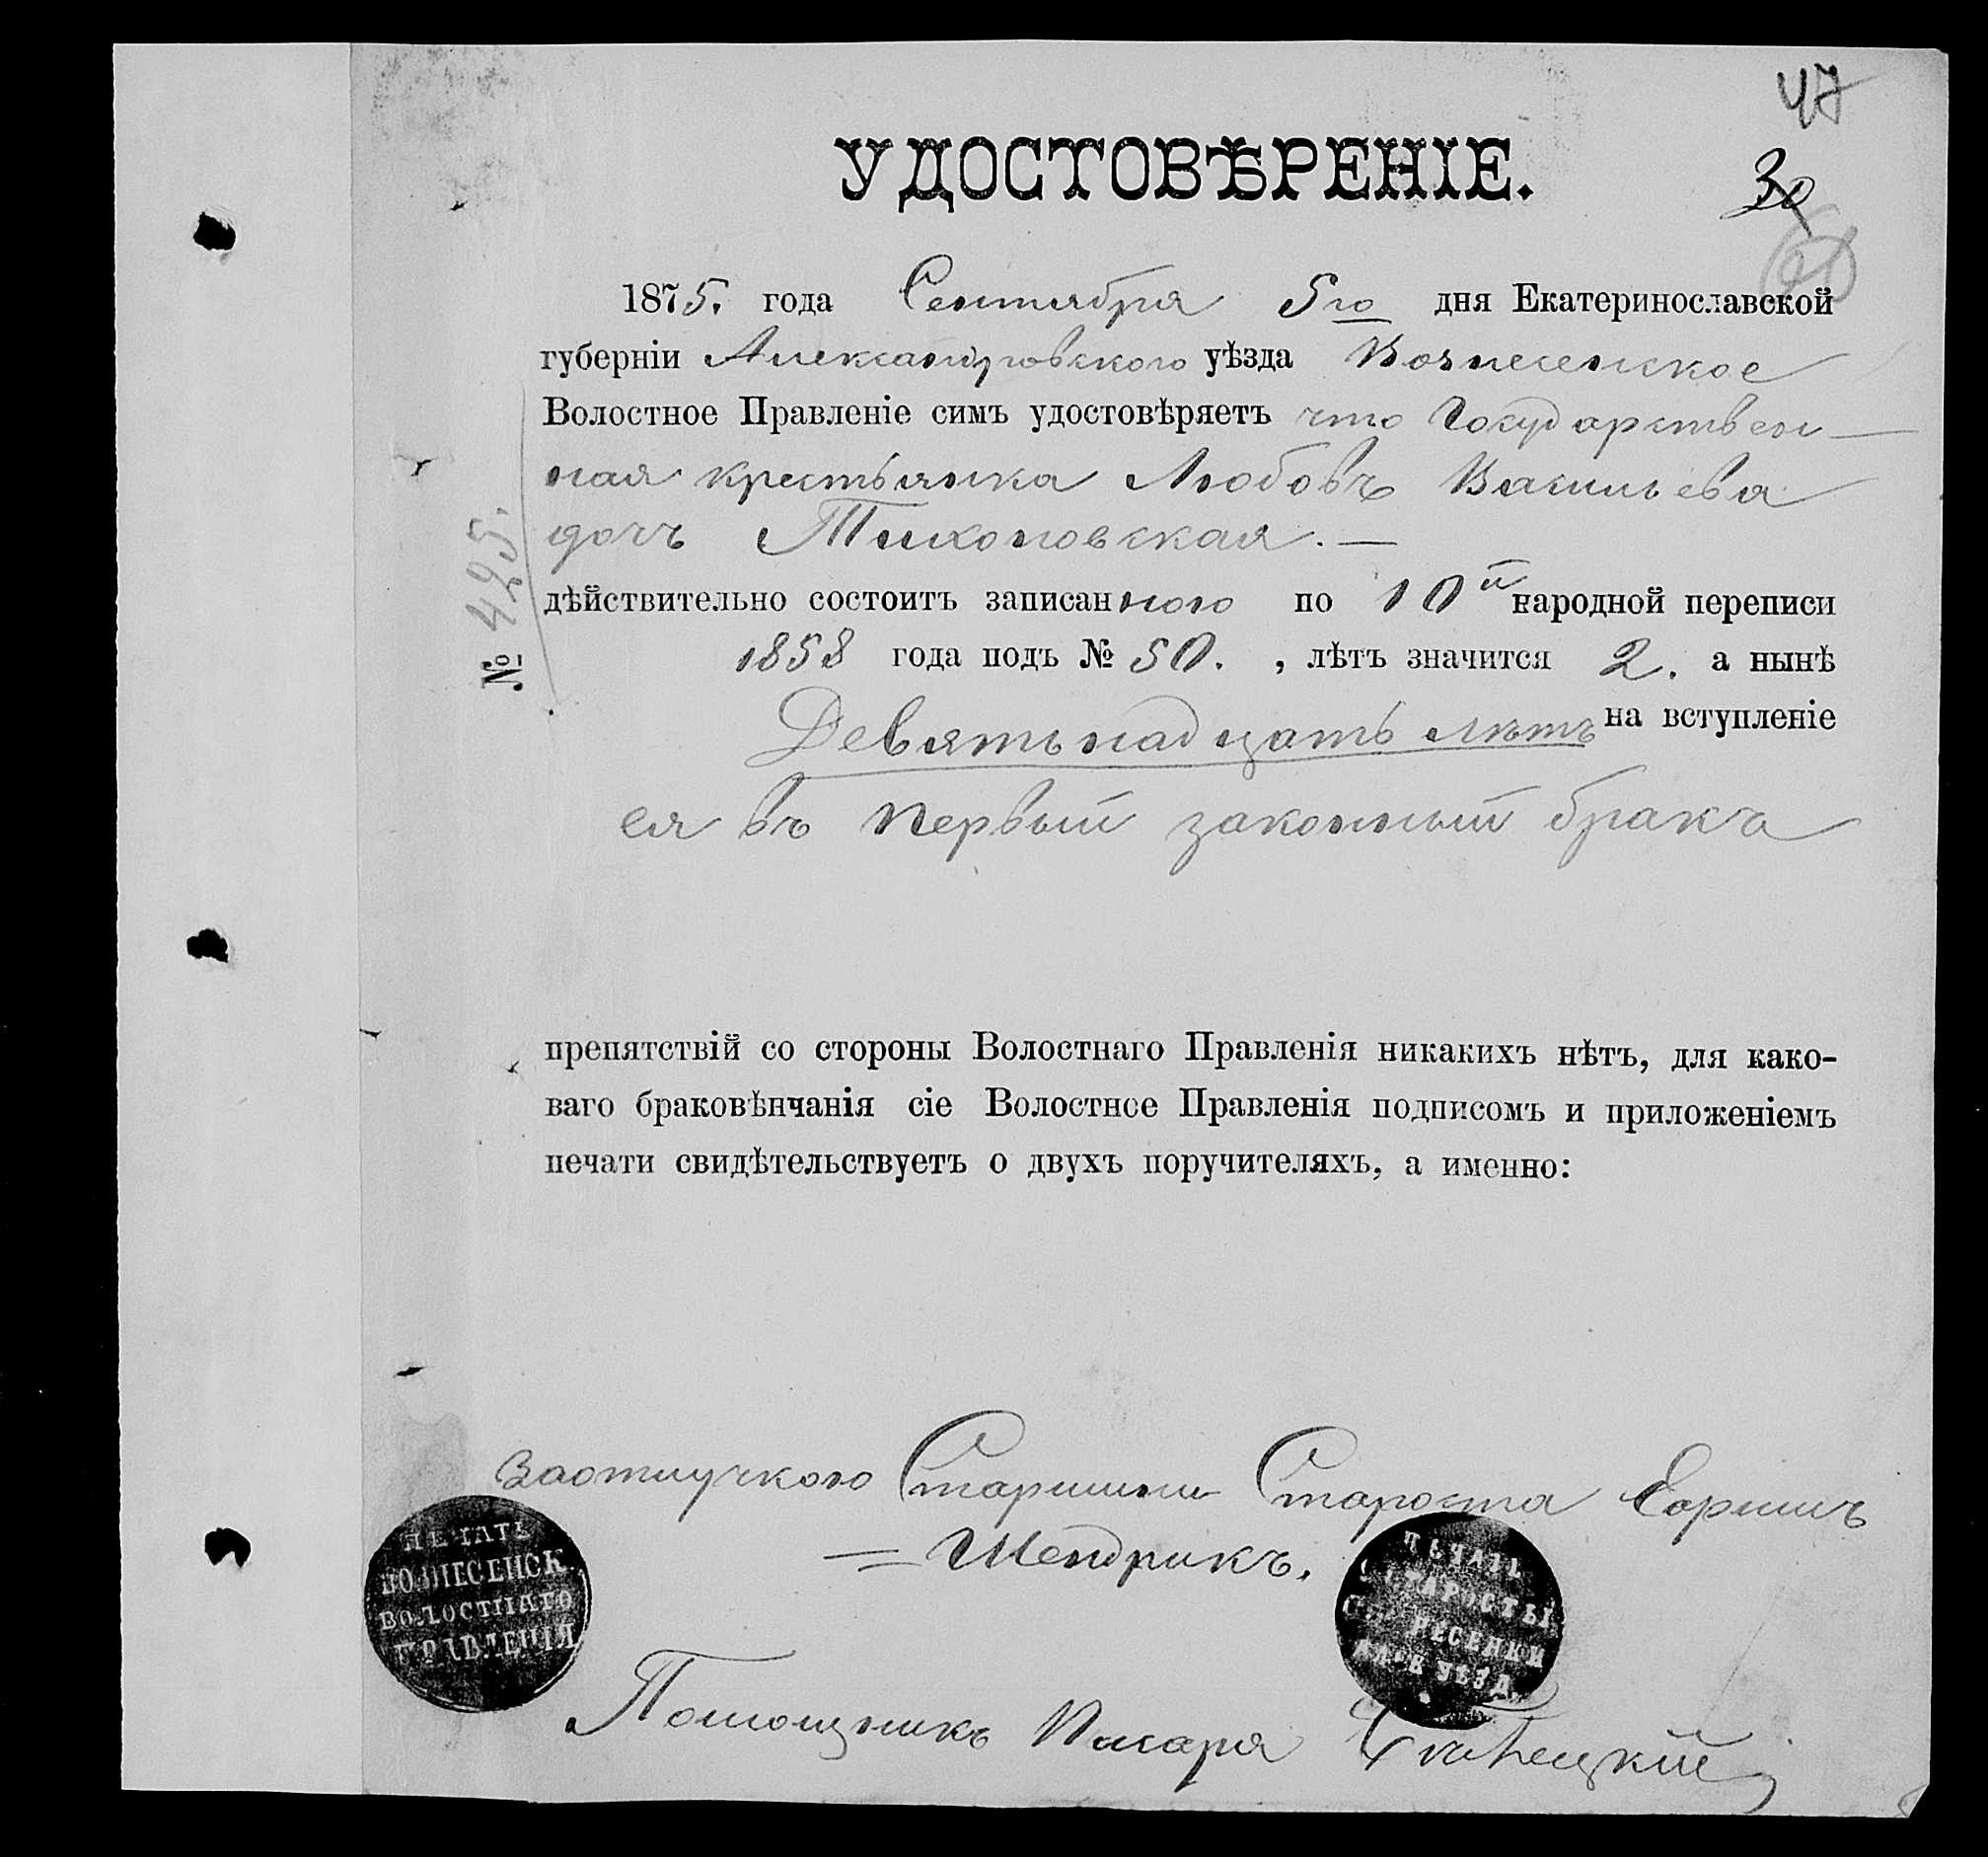 47
УДОСТОВѢРЕНІЕ.
30
1875. года Сентября 5го дня Екатеринославской
губерніи Александровского уѣзда Вознесенское
Волостное Правленіе симъ удостовѣряетъ что Государствен-
ная крестьянка Любовъ Васильева
дочъ Тихоновская. —
№ 425.
дѣйствительно состоитъ записанною по 10й народной переписи
1858 года подъ № 50. , лѣтъ значится 2. а нынѣ
Девятьнадцать лѣтъ на вступленіе
ея въ первый законный бракъ
препятствій со стороны Волостнаго Правленія никакихъ нѣтъ, для како-
ваго браковѣнчанія сіе Волостное Правленія подписомъ и приложеніемъ
печати свидѣтельствуетъ о двухъ поручителяхъ, а именно:
Старшини Староста
= Шендрикъ.
ПЕЧАТЬ
ВОЗНЕСЕНСК.
ВОЛОСТНАГО
ПРАВЛЕНІЯ
ПЕЧАТЬ
СТАРОСТЫ
УѢЗД.
Помощникъ Писаря